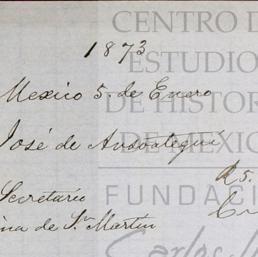 CENTRO D
ESTUDIO
DE HISTOR
DE MEXIC
FUNDAC
Carlos
1873
Mexico 5. de Enero
José de Ansoategui
R5.
Secretario
ina de Sn Martin